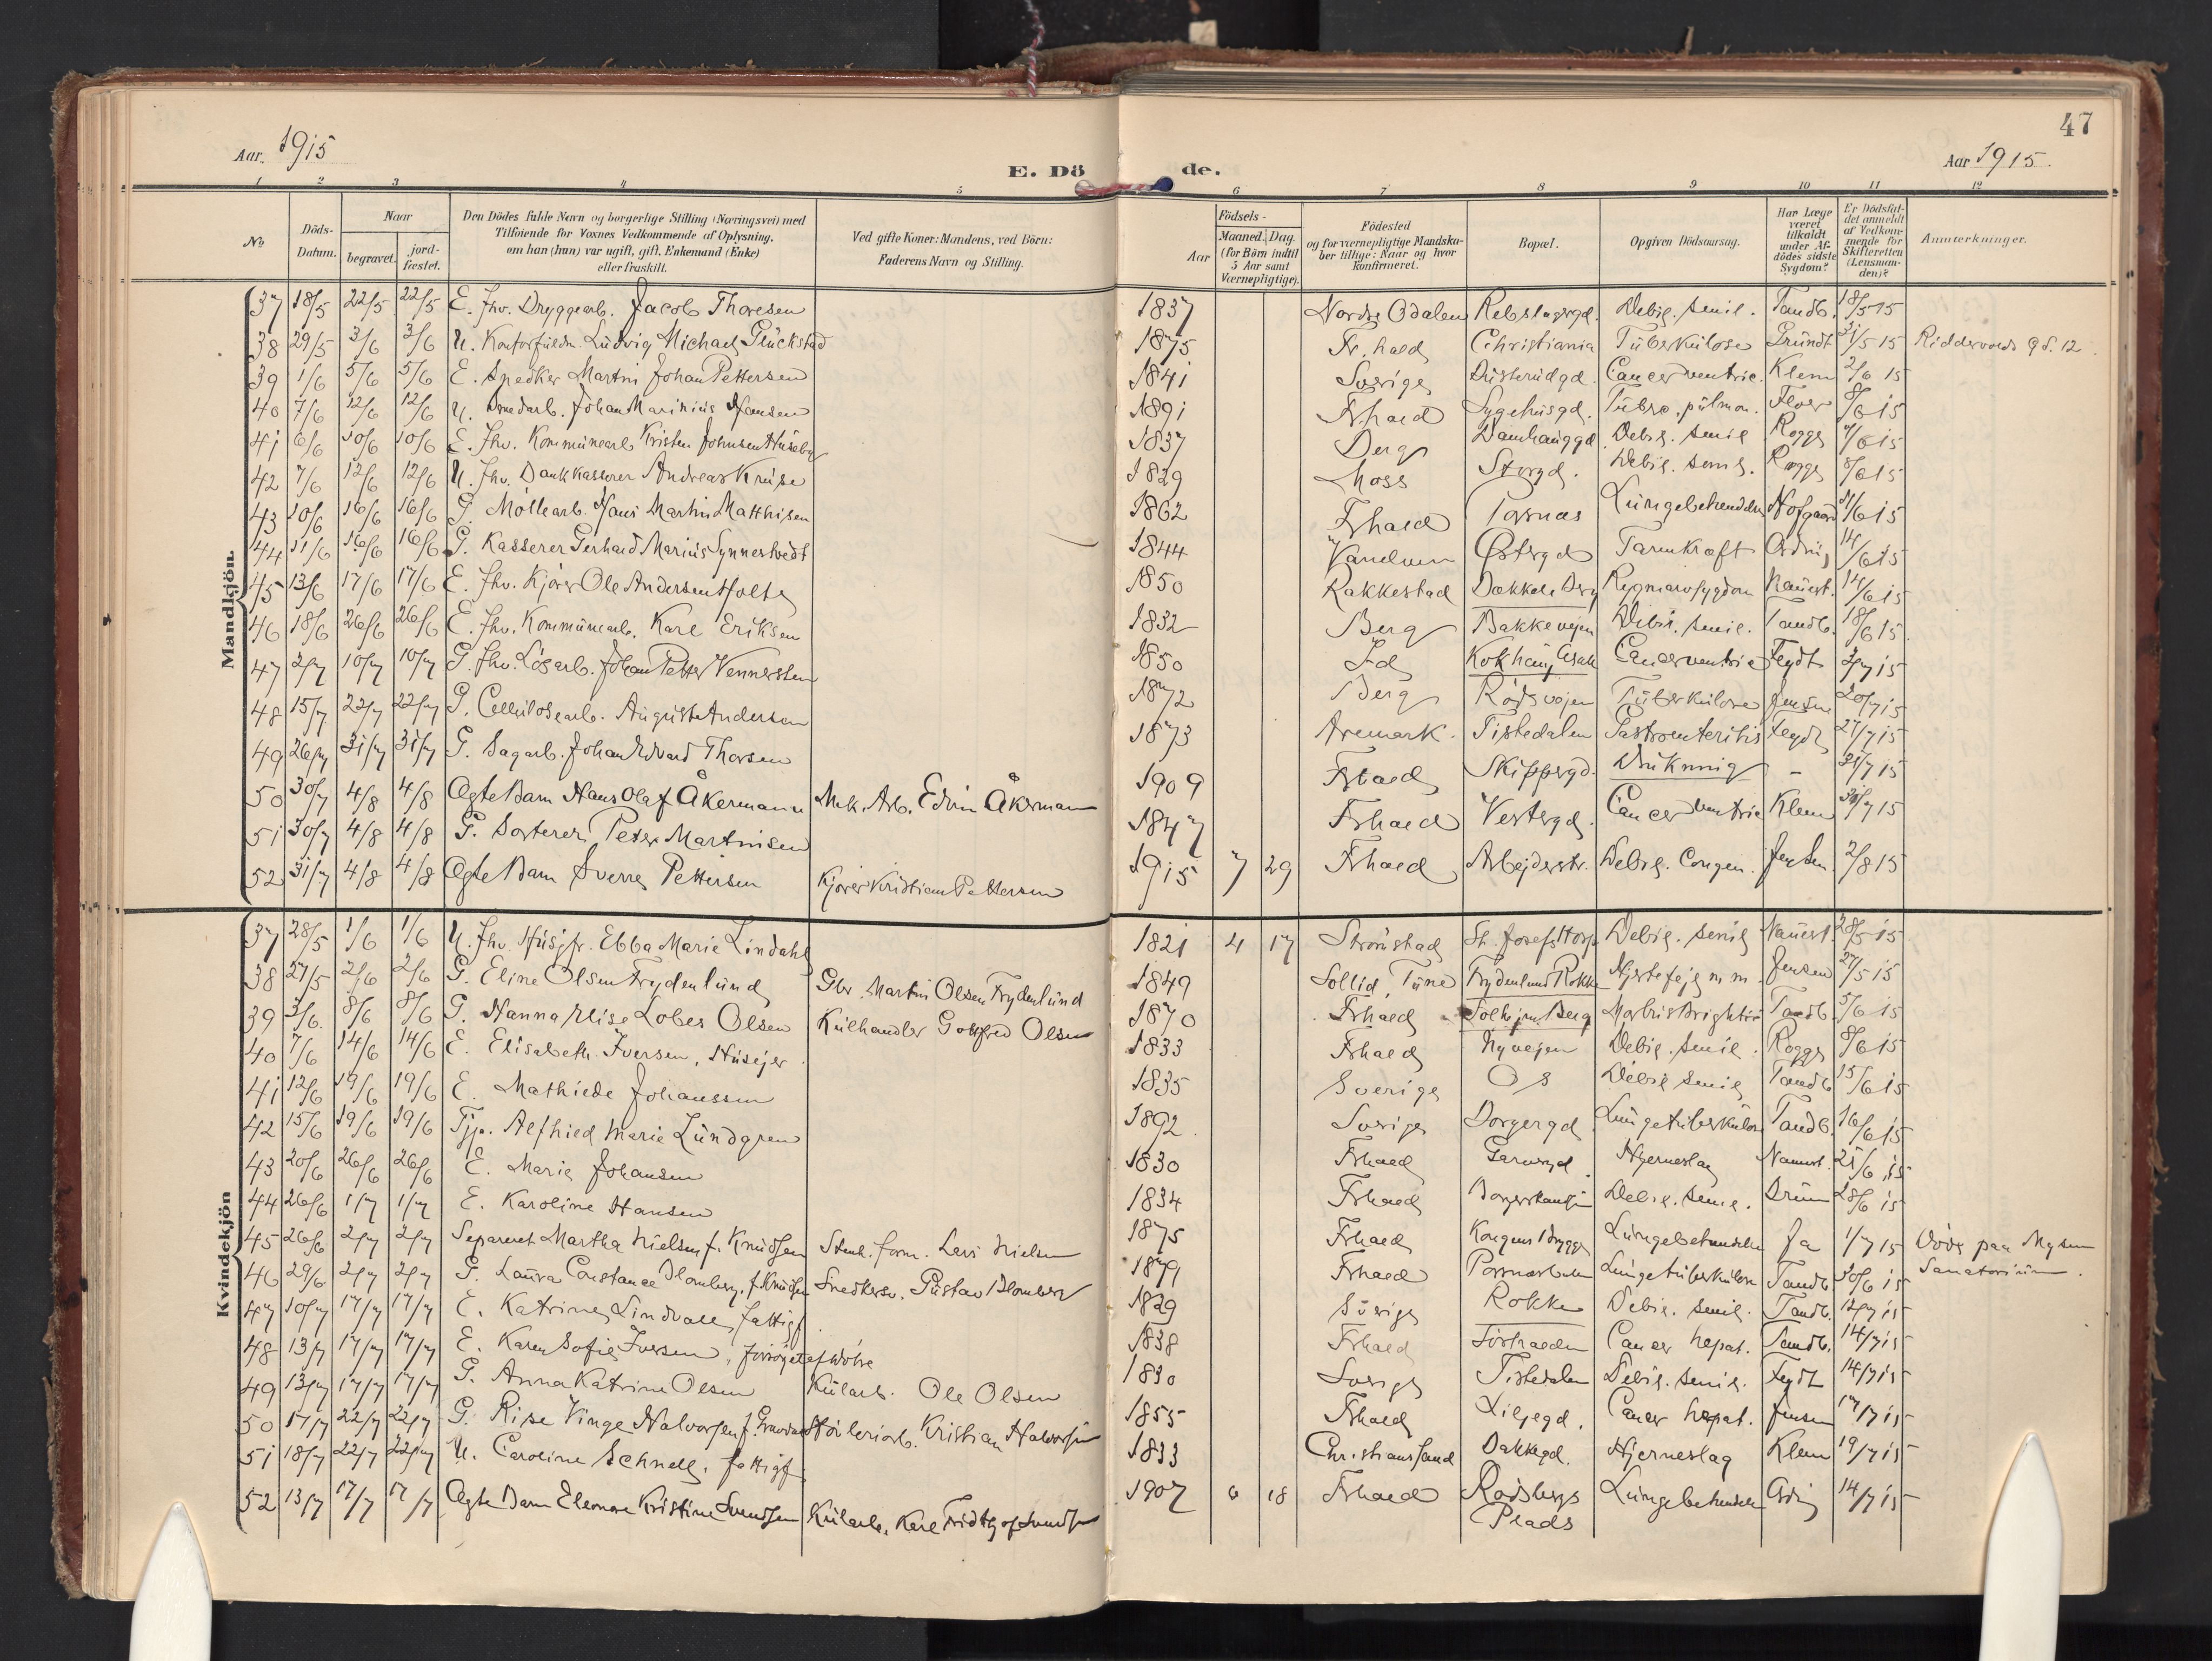 47
Aar 1915
Aar 1915
E. Döde.
1 2 3 4 5 6 7 8 9 10 11 12
No
Döds-Datum.
Naar begravet. jordfæstet.
Den Dödes fulde Navn og borgerlige Stilling (Næringsvei) med
Tilföiende for Voxnes Vedkommende af Oplysning,
om han (hun) var ugift, gift, Enkemand (Enke)
eller fraskilt.
Ved gifte Koner: Mandens, ved Börn:
Faderens Navn og Stilling.
Födsels-
Aar Maaned. Dag.
(for Börn indtil 5 Aar samt Værnepligtige).
Födested
og for værnepligtige Mandskaber tillige: Naar og hvor konfirmeret.
Bopæl.
Opgiven Dödsaarsag.
Har Læge været tilkaldt under Afdödes sidste Sygdom?
Er Dödsfaldet anmeldt af Vedkommende for Skifteretten (Lensmanden)?
Anmærkninger.
Mandkjön.
37 18/5 22/5 22/5 E. Fhv. Bryggearb. Jacob Thoresen 1837 Nordre Odalen Rebslagergd. Debil. senil. Tandb. 18/5 15
38 29/5 3/6 3/6 U. Kontorfuldm. Ludvig Michael Glückstad 1875 Fr.hald Christiania Tuberkulose Gründt 31/5 15 Riddervolds gd. 12.
39 1/6 5/6 5/6 E. Snedker Martin Johan Pettersen 1841 Sverige Busterudgd. Cancer ventric. Klem 2/6 15
40 7/6 12/6 12/6 U. Johan Marinius Hansen 1891 Frhald Sygehusgd. Tuberc. pulmon. 8/6 15
41 6/6 10/6 10/6 E. Fhv. Kommunearb. Kristen Johnsen Huseby 1837 Berg Damhauggd. Debil. senil Rogge 7/6 15
42 7/6 12/6 12/6 U. Fhv. Bankkasserer Andreas Kruse 1829 Moss Storgd. Debil. senil. Rogge 8/6 15
43 10/6 16/6 16/6 G. Möllearb. Hans Martin Matthisen 1862 Frhald Porsnes Lungebetændelse Hofgaard 11/6 15
44 11/6 16/6 16/6 G. Kasserer Gerhard Marius Synnestvedt 1844 Östergd 14/6 15
45 13/6 17/6 17/6 E. Fhv. Kjörer Ole Andersen Holte 1850 Rakkestad Bakkeli Berg Rygmarvsygdom Nauest. 14/6 15
46 18/6 26/6 26/6 E. Fhv. Kommunearb. Karl Eriksen 1832 Berg Bakkevejen Debil. senil. Tandb. 18/6 15
47 2/7 10/7 10/7 G. Fhv. Lösarb. Johan Petter Vennersten 1850 Id Cancer ventric Feydt 3/7 15
48 15/7 22/7 22/7 G. Cellulosearb. August Andersen 1872 Berg Rödsvejen Tuberkulose Jensen 20/7 15
49 26/7 31/7 31/7 G. Sagarb. Johan Edvard Thorsen 1873 Aremark. Tistedalen Gastroenteritis Feydt 27/7 15
50 30/7 4/8 4/8 Ægte Barn Hans Olaf Åkermann Mek. Arb. Edvin Åkerman 1909 Frhald Skippergd. Drukning - 31/7 15
51 30/7 4/8 4/8 G. Sorterer Peter Martinisen 1847 Frhald Vestergd. Cancer ventric Klem 31/7 15
52 31/7 4/8 4/8 Ægte Barn Sverre Pettersen Kjörer Kristian Pettersen 1915 7 29 Frhald Arbejderstr. Debil. Congen. Jensen 2/8 15
Kvindekjön
37 28/5 1/6 1/6 U. Fhv. Husjfr. Ebba Marie Lindahl 1821 4 17 Strömstad St. Josefs Hosp. Debil. senil Nauest. 28/5 15
38 27/5 2/6 2/6 G. Eline Olsen Frydenlund Gbr. Martin Olsen Frydenlund 1849 Sollid, Tune Frydenlund Rokke Hjertefejl m. m. Jensen 27/5 15
39 3/6 8/6 8/6 G. Hanna Elise Lobes Olsen Kulhandler Gotfred Olsen 1870 Frhald Solhjem Berg Morbus Brightii Tandb. 5/6 15
40 7/6 14/6 14/6 E. Elisabeth Iversen, Husejer. 1833 Frhald Nyvejen Debil. senil. Rogge 8/6 15
41 12/6 19/6 19/6 E. Mathilde Johanssen 1835 Sverige Os Debil senil Tandb. 15/6 15
42 15/6 19/6 19/6 Tjp. Alfhild Marie Lundgren 1892 Sverige Borgergd. Lungetuberkulose Tandb. 16/6 15
43 20/6 26/6 26/6 E. Marie Johansen 1830 Frhald Garvergd. Hjerneslag Nauest. 21/6 15
44 26/6 1/7 1/7 E. Karoline Hansen 1834 Frhald Debil. senil. 28/6 15
45 26/6 2/7 2/7 Separeret Martha Nielsen f. Knudsen Stenh. form. Lars Nielsen 1875 Frhald Kongens Brygge Lungebetændelse Ja 1/7 15 Döde paa Mysen Sanatorium.
46 29/6 2/7 2/7 G. Laura Constance Blomberg, f. Knudsen Snedkersv. Gustav Blomberg 1879 Frhald Lungetuberkulose Tandb. 30/6 15
47 10/7 17/7 17/7 E. Katrine Lindvall, fattigf. 1829 Sverige Rokke Debil. senil. Tandb. 12/7 15
48 13/7 17/7 17/7 E. Karen Sofie Iversen, forsörget af Börn 1838 Frhald Sörhalden Cancer hepat. Tandb. 14/7 15
49 13/7 17/7 17/7 G. Anna Katrine Olsen Kularb. Ole Olsen 1830 Sverige Tistedalen Debil. senil. Feydt 14/7 15
50 17/7 22/7 22/7 G. Rise Vinge Halvorsen f. Hövleriarb. Kristian Halvorsen 1855 Frhald Liljegd. Cancer hepat. Jensen 17/7 15
51 18/7 22/7 22/7 U. Caroline Schnell, fattigf. 1833 Christianssand Bakkegd. Hjerneslag Klem 19/7 15
52 13/7 17/7 17/7 Ægte Barn Eleonore Kristine Svendsen Kularb. Karl Fridtjof Svendsen 1907 6 18 Frhald Rödsbergs Plads Lungebetændelse 14/7 15